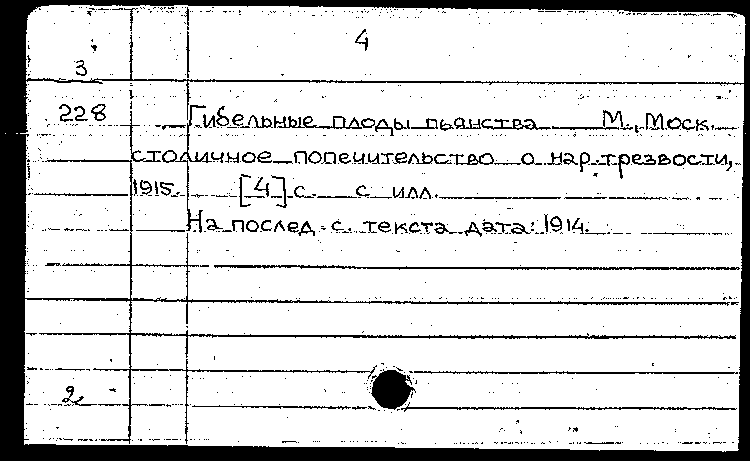 4
3
228 Гибельные плоды пьянства М., Моск.
столичное попечительство о нар. трезвости,
1915. [4] с. с илл.
На послед. с. текста дата: 1914.
2